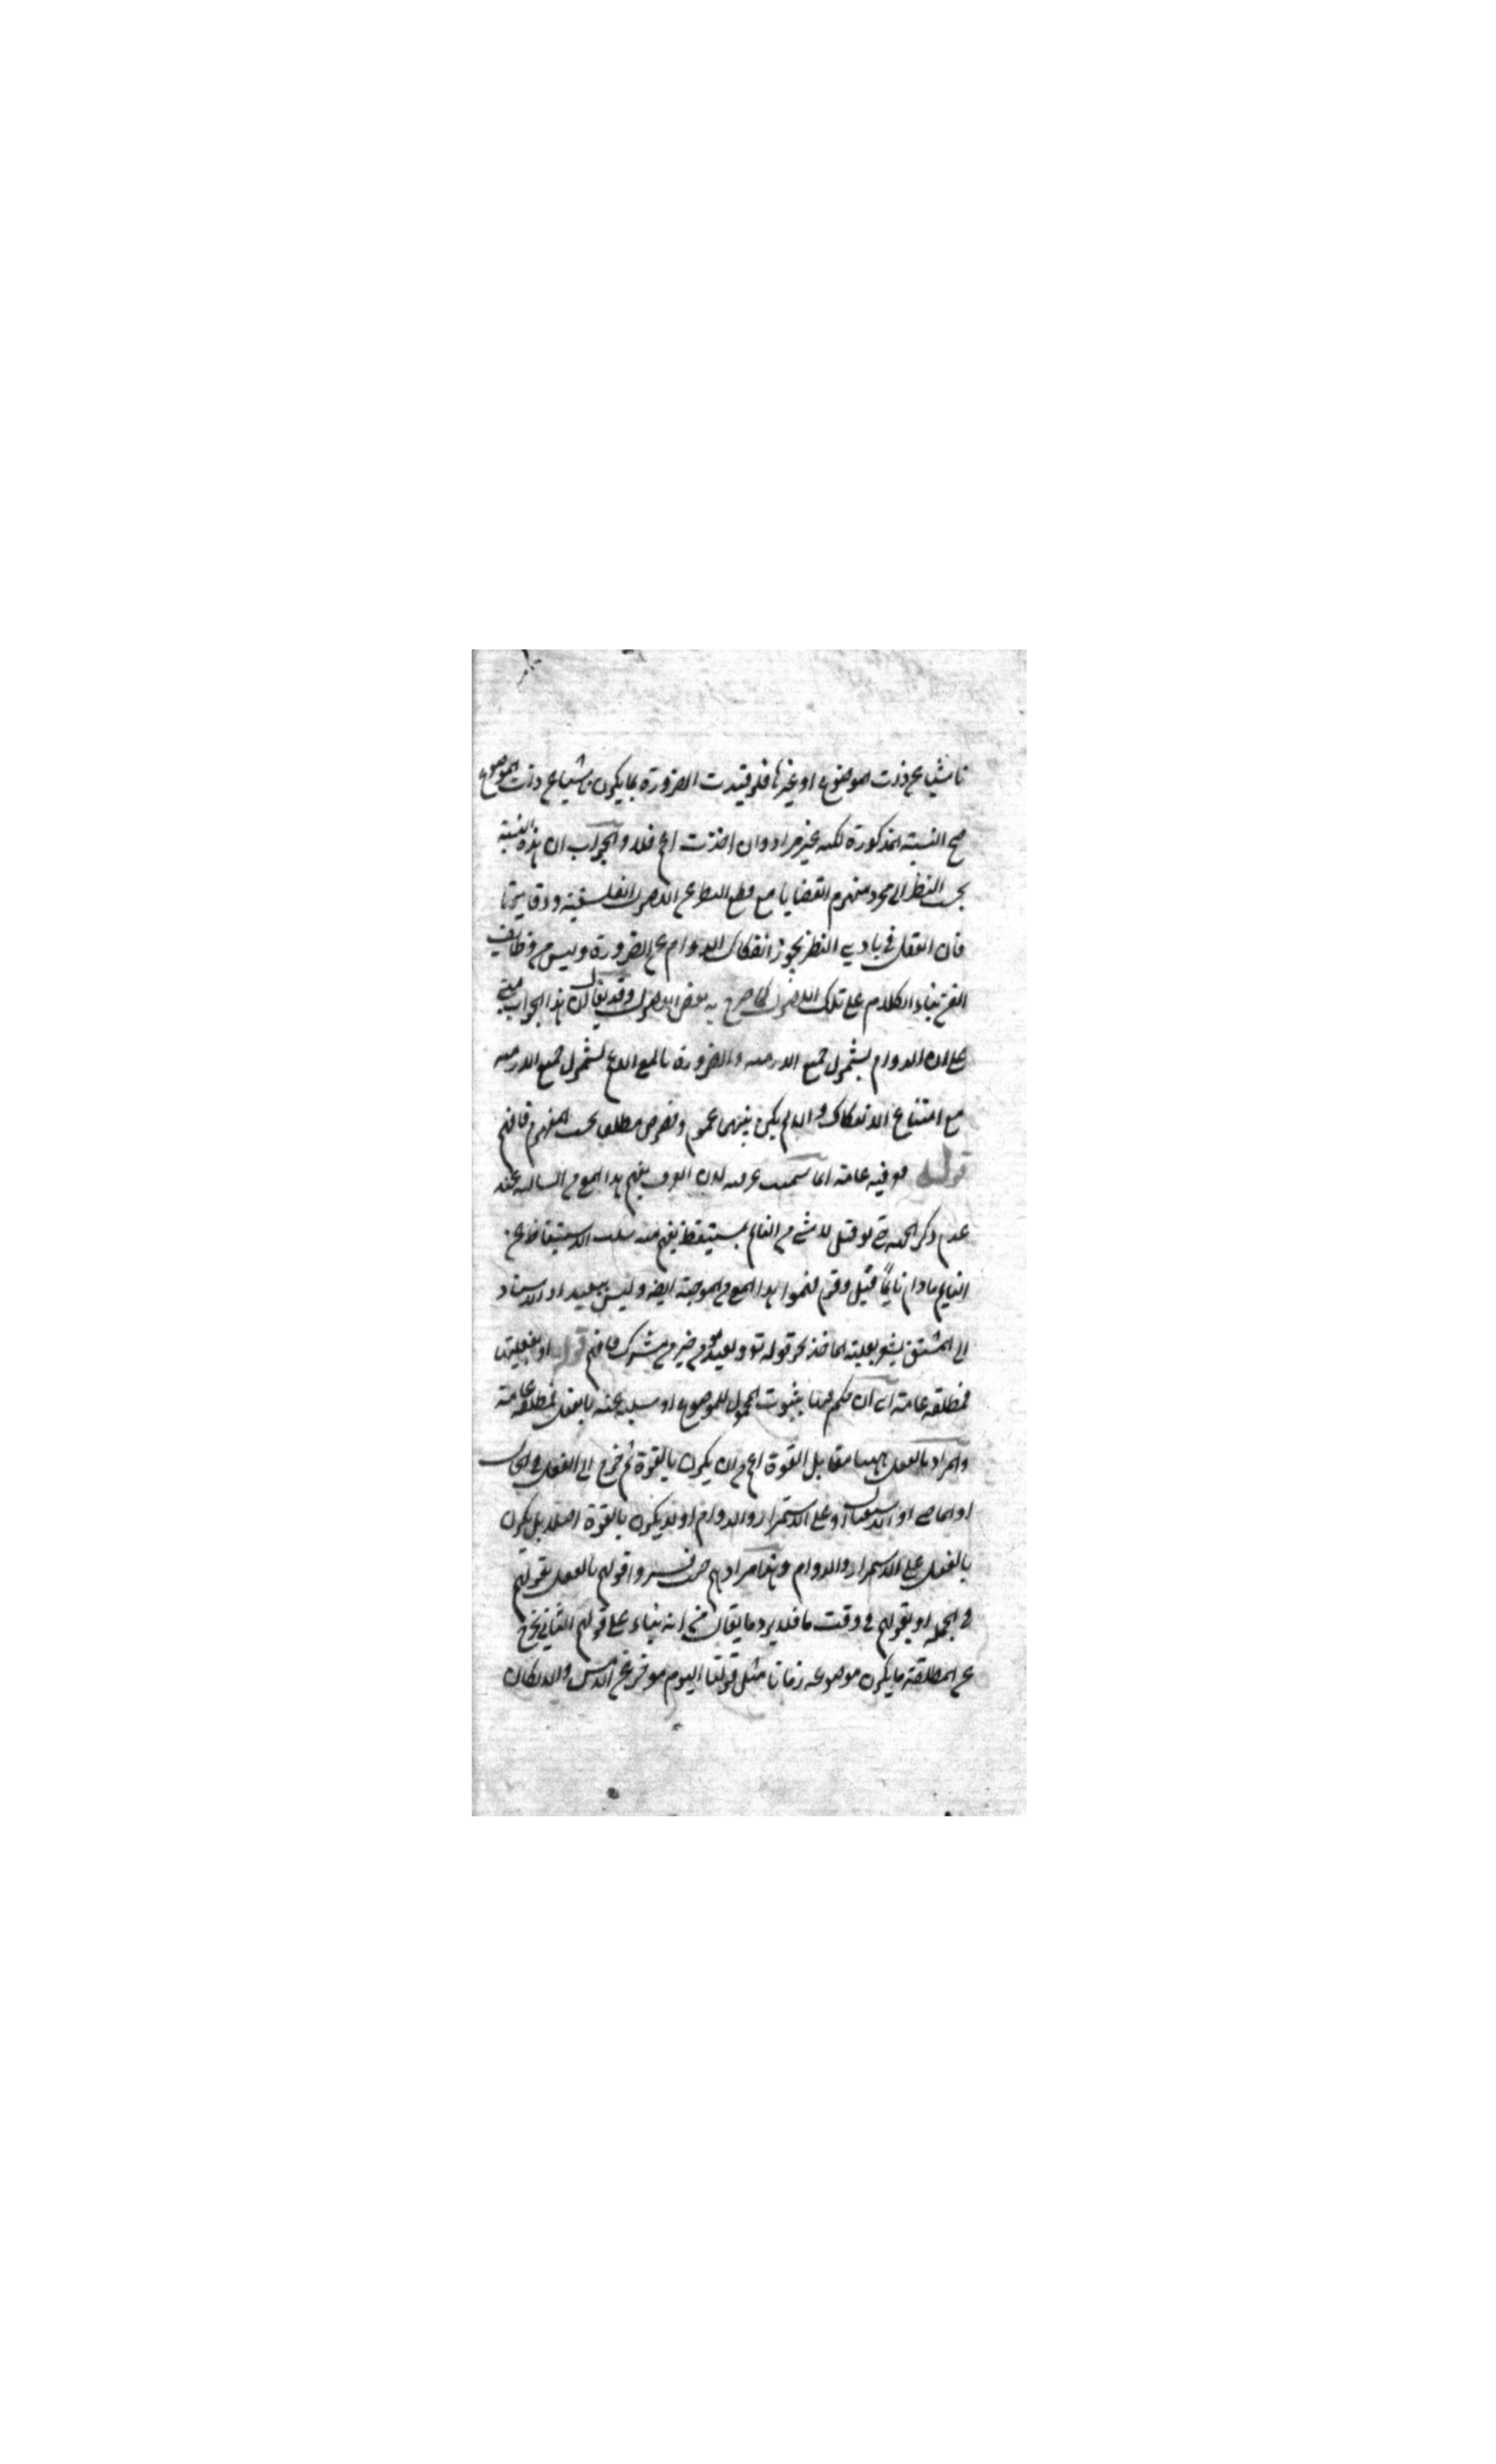 ناشيا عن ذات الموضوع او غيرها فلو قيدت الضرورة بما يكون ناشيا عن ذات الموضوع
صح النسبة المذكورة لكنه غير مراد وان اخذت اعم فلا والجواب ان هذه النسبة
بحسب النظر الى مجرد مفهوم القضايا مع قطع النظر عن الاصول الفلسفية ودقايقها
فان العقل في بادي النظر يجوز انفكاك الدوام عن الضرورة وليس من وظايف
الفن بناء الكلام على تلك الاصول كما صرح به بعض وقد يقال ان هذا الجواب مبني
على ان الدوام يشمل جميع الازمنه والضرورة بالمعنى الاعم يشمل جميع الازمنه
مع امتناع الانفكاك والا لم يكن بينهما عموم وخصوص مطلقا بحسب المفهوم فافهم
قوله عرفيه عامة انما سميت عرفيه لان العرف يفهم هذا المعنى من السالبه عند
عدم ذكر الجهه حتى لو قيل لا شئ من النائم بمستيقظ يفهم منه سلب الاستيقاظ عن
النايم ما دام نايماً قيل وقوم فهموا هذا المعنى من الموجبة ايضا وليس ببعيد اذ الاسناد
الى المشتق يشعر بعلية الماخذ نحو قوله تع ولعبد مؤمن خير من مشرك فافهم قوله او بفعليتها
فمطلقه عامة اى ان حكم فيها بثبوت المحمول للموضوع او سلبه عنه بالفعل فمطلقه عامة
والمراد بالفعل ههنا مقابل القوة اعم من ان يكون بالقوة ثم خرج الى الفعل في الحال
او الماضى او الاستقبال او على الاستمرار والدوام او لا يكون بالقوة اصلا بل يكون
بالفعل على الاستمرار والدوام وهذا مرادهم حيث فسروا قولهم بالفعل بقولهم
في الجملة او بقولهم في وقت ما فلا يرد ما يقال من انه بناء على قولهم الثاني يخرج
عن المطلقة ما يكون موضوعه زمانا مثل قولنا اليوم موخر عن الامس والا لكان